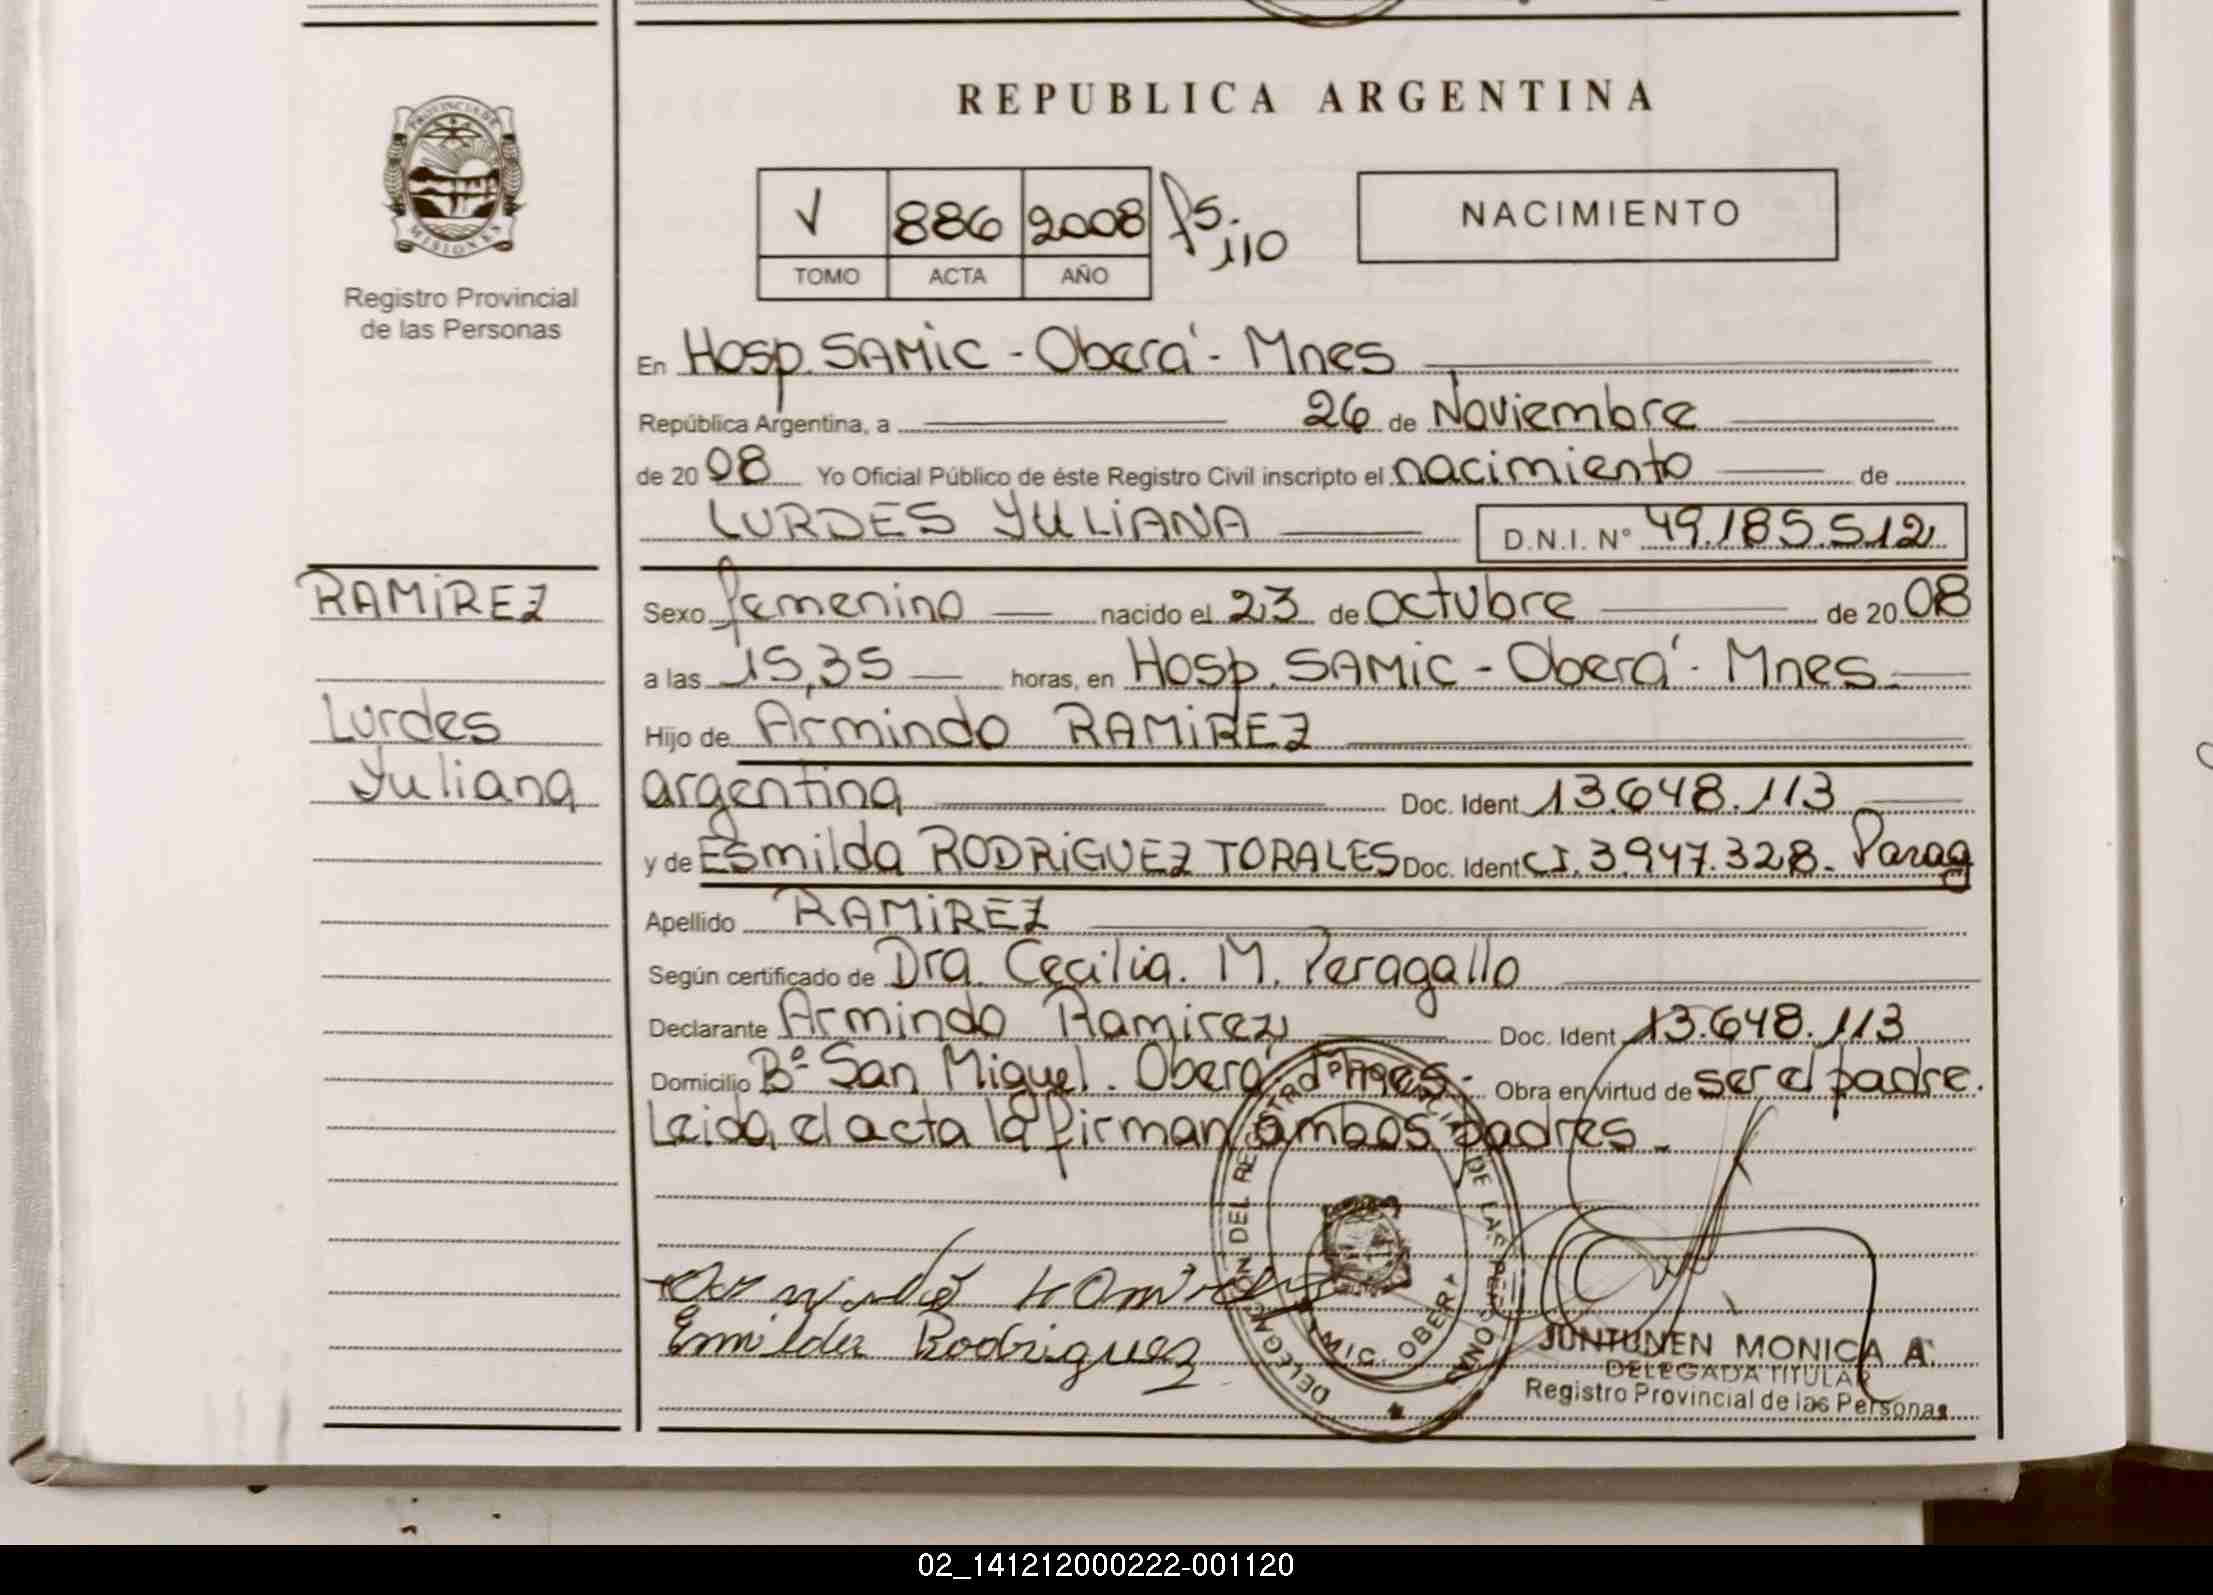 REPUBLICA ARGENTINA
PROVINCIA DE MISIONES
Registro Provincial
de las Personas
V 886 2008 fs. 110
TOMO ACTA AÑO
NACIMIENTO
En Hosp. SAMIC - Oberá - Mnes
República Argentina, a 26 de Noviembre
de 20 08 Yo Oficial Público de éste Registro Civil inscripto el nacimiento de
LURDES YULIANA D.N.I. N° 49.185.512
RAMIREZ
Lurdes
Yuliana
Sexo femenino nacido el 23 de Octubre de 20 08
a las 15,35 horas, en Hosp. SAMIC - Oberá - Mnes.
Hijo de Armindo RAMIREZ
argentina Doc. Ident. 13.648.113
y de Esmilda RODRIGUEZ TORALES Doc. Ident. CI. 3.947.328. Parag
Apellido RAMIREZ
Según certificado de Dra. Cecilia. M. Peragallo
Declarante Armindo Ramirez Doc. Ident. 13.648.113
Domicilio Bº San Miguel. Oberá Mnes. Obra en virtud de ser el padre.
Leida el acta la firman ambos padres.
DELEGACION DEL REGISTRO PROVINCIAL DE LAS PERSONAS
SAMIC. OBERA
Armindo Ramirez
Esmilda Rodriguez
JUNTUNEN MONICA A.
DELEGADA TITULAR
Registro Provincial de las Personas
02_141212000222-001120